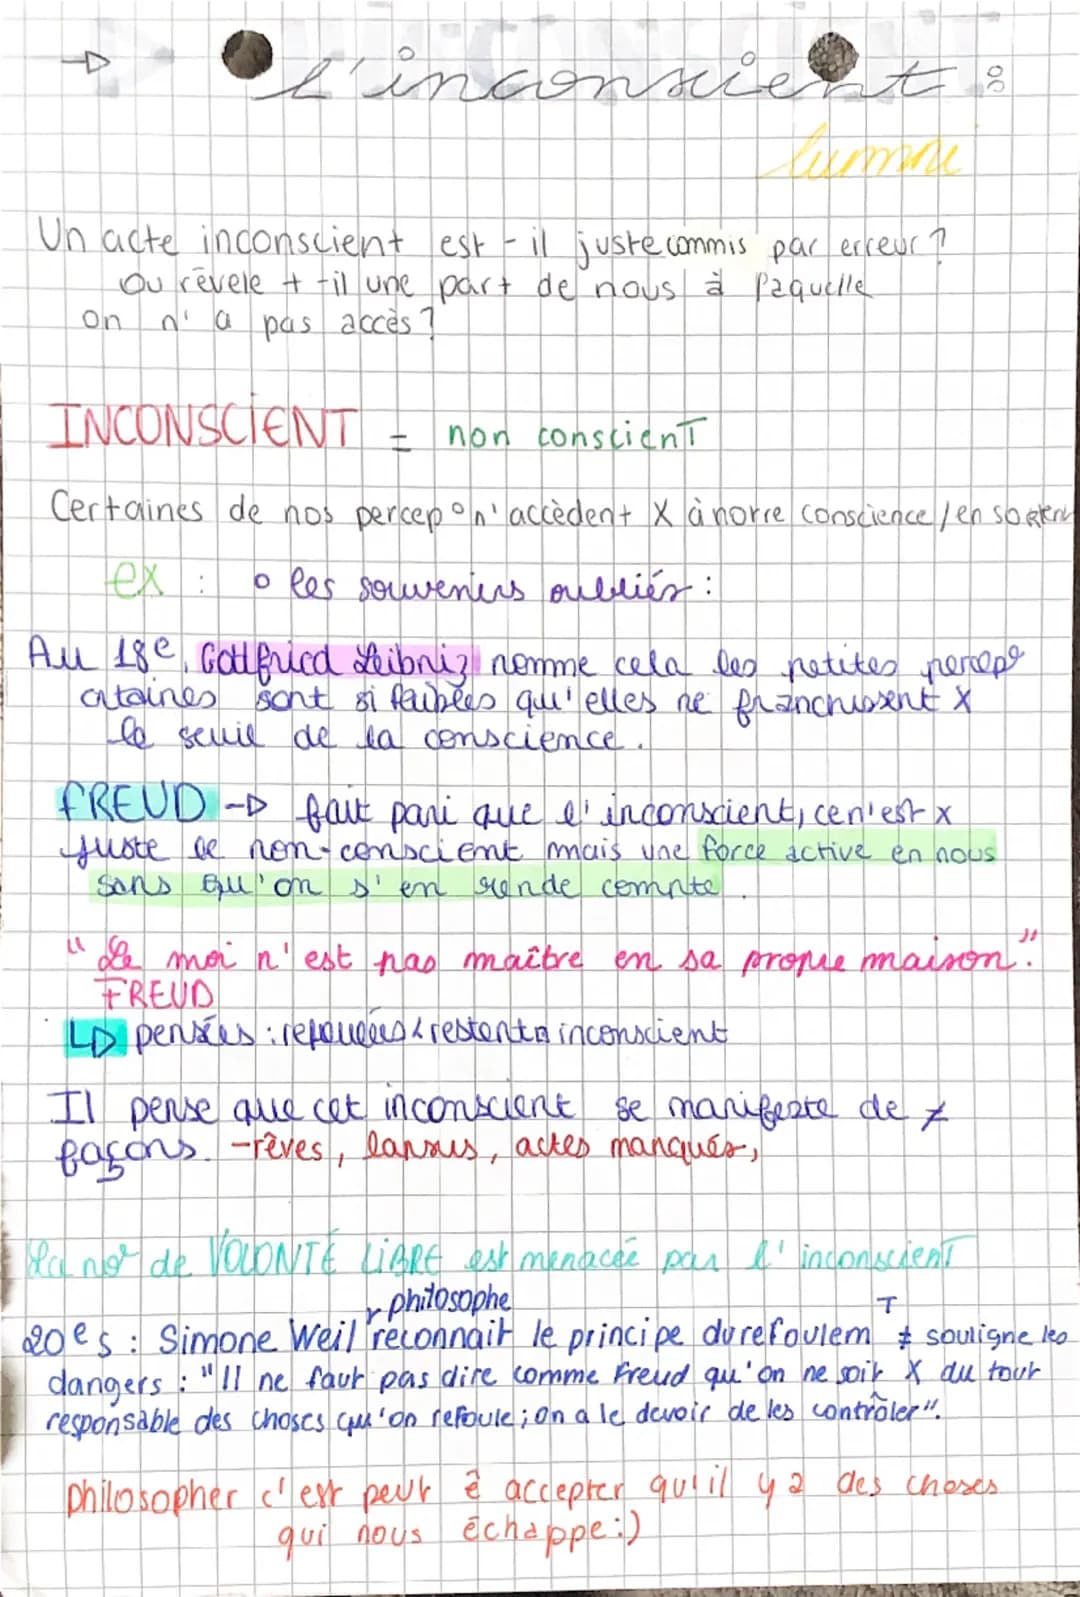 → L'inconscient :
lumni
Un acte inconscient est-il juste commis par erreur ?
Ou révèle t-il une part de nous à laquelle
on n'a pas accès ?
INCONSCIENT = non conscient
Certaines de nos percep° n'accèdent X à notre conscience / en sortent
ex : o les souvenirs oubliés :
Au 18e, Gottfried Leibniz nomme cela les petites percep°
certaines sont si faibles qu'elles ne franchissent X
le seuil de la conscience.
FREUD → fait pari que l'inconscient, ce n'est x
juste le non-conscient mais une force active en nous
sans qu'on s'en rende compte.
"Le moi n'est pas maître en sa propre maison".
FREUD
↳ pensées : refoulées & restent inconscient
Il pense que cet inconscient se manifeste de ≠
façons. -rêves, lapsus, actes manqués,
La no° de VOLONTÉ LIBRE est menacée par l'inconscient
philosophe
20e s : Simone Weil reconnait le principe du refoulem T ≠ souligne les
dangers : "Il ne faut pas dire comme Freud qu'on ne soit X du tout
responsable des choses qu'on refoule ; on a le devoir de les contrôler".
Philosopher c'est peut ê accepter qu'il y a des choses
qui nous échappe :)